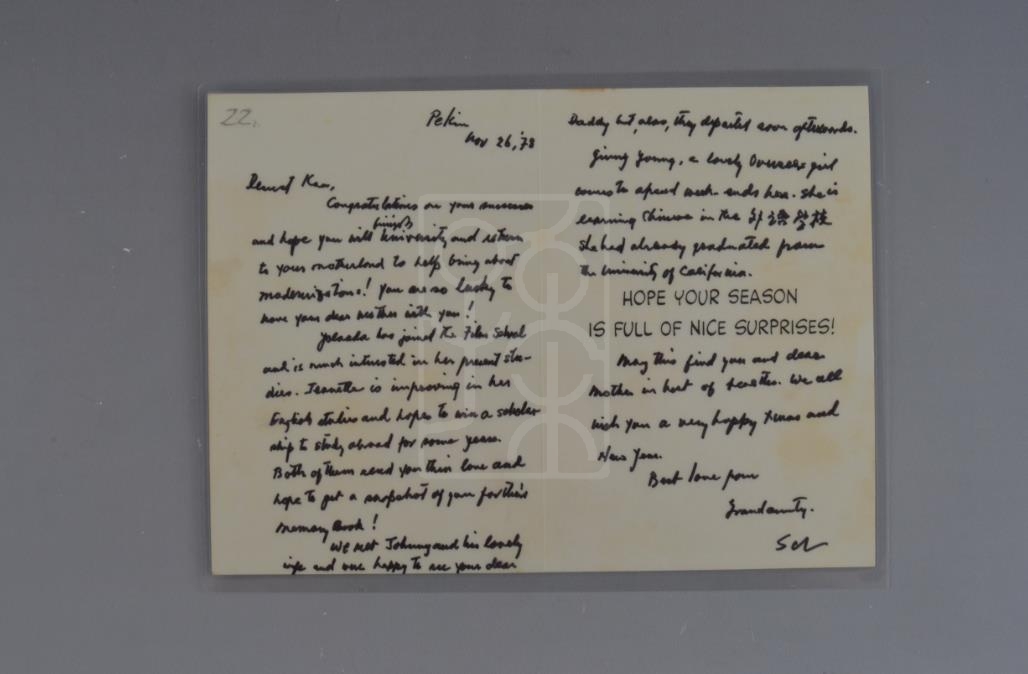 22.
Pekin
Nov 26, '78
Dearest Ken,
Congratulations on your successes
finish
and hope you will University and return
to your motherland to help bring about
modernizations! You are so lucky to
have your dear mother with you!
Yolanda has joined the Film School
and is much interested in her present stu-
dies. Jeanette is improving in her
English studies and hopes to win a scholar-
ship to study abroad for some years.
Both of them send you their love and
hope to get a snapshot of you for their
Memory Book!
We met Johnny and his lovely
wife and were happy to see your dear
Daddy but, alas, they departed soon afterwards.
Young, a lovely Overseas girl
comes to spend week-ends here. She is
learning Chinese in the
She had already graduated from
the University of California.
HOPE YOUR SEASON
IS FULL OF NICE SURPRISES!
May this find you and dear
Mother in best of health. We all
wish you a very happy Xmas and
New Year.
Best love from
Grandaunty.
SCL